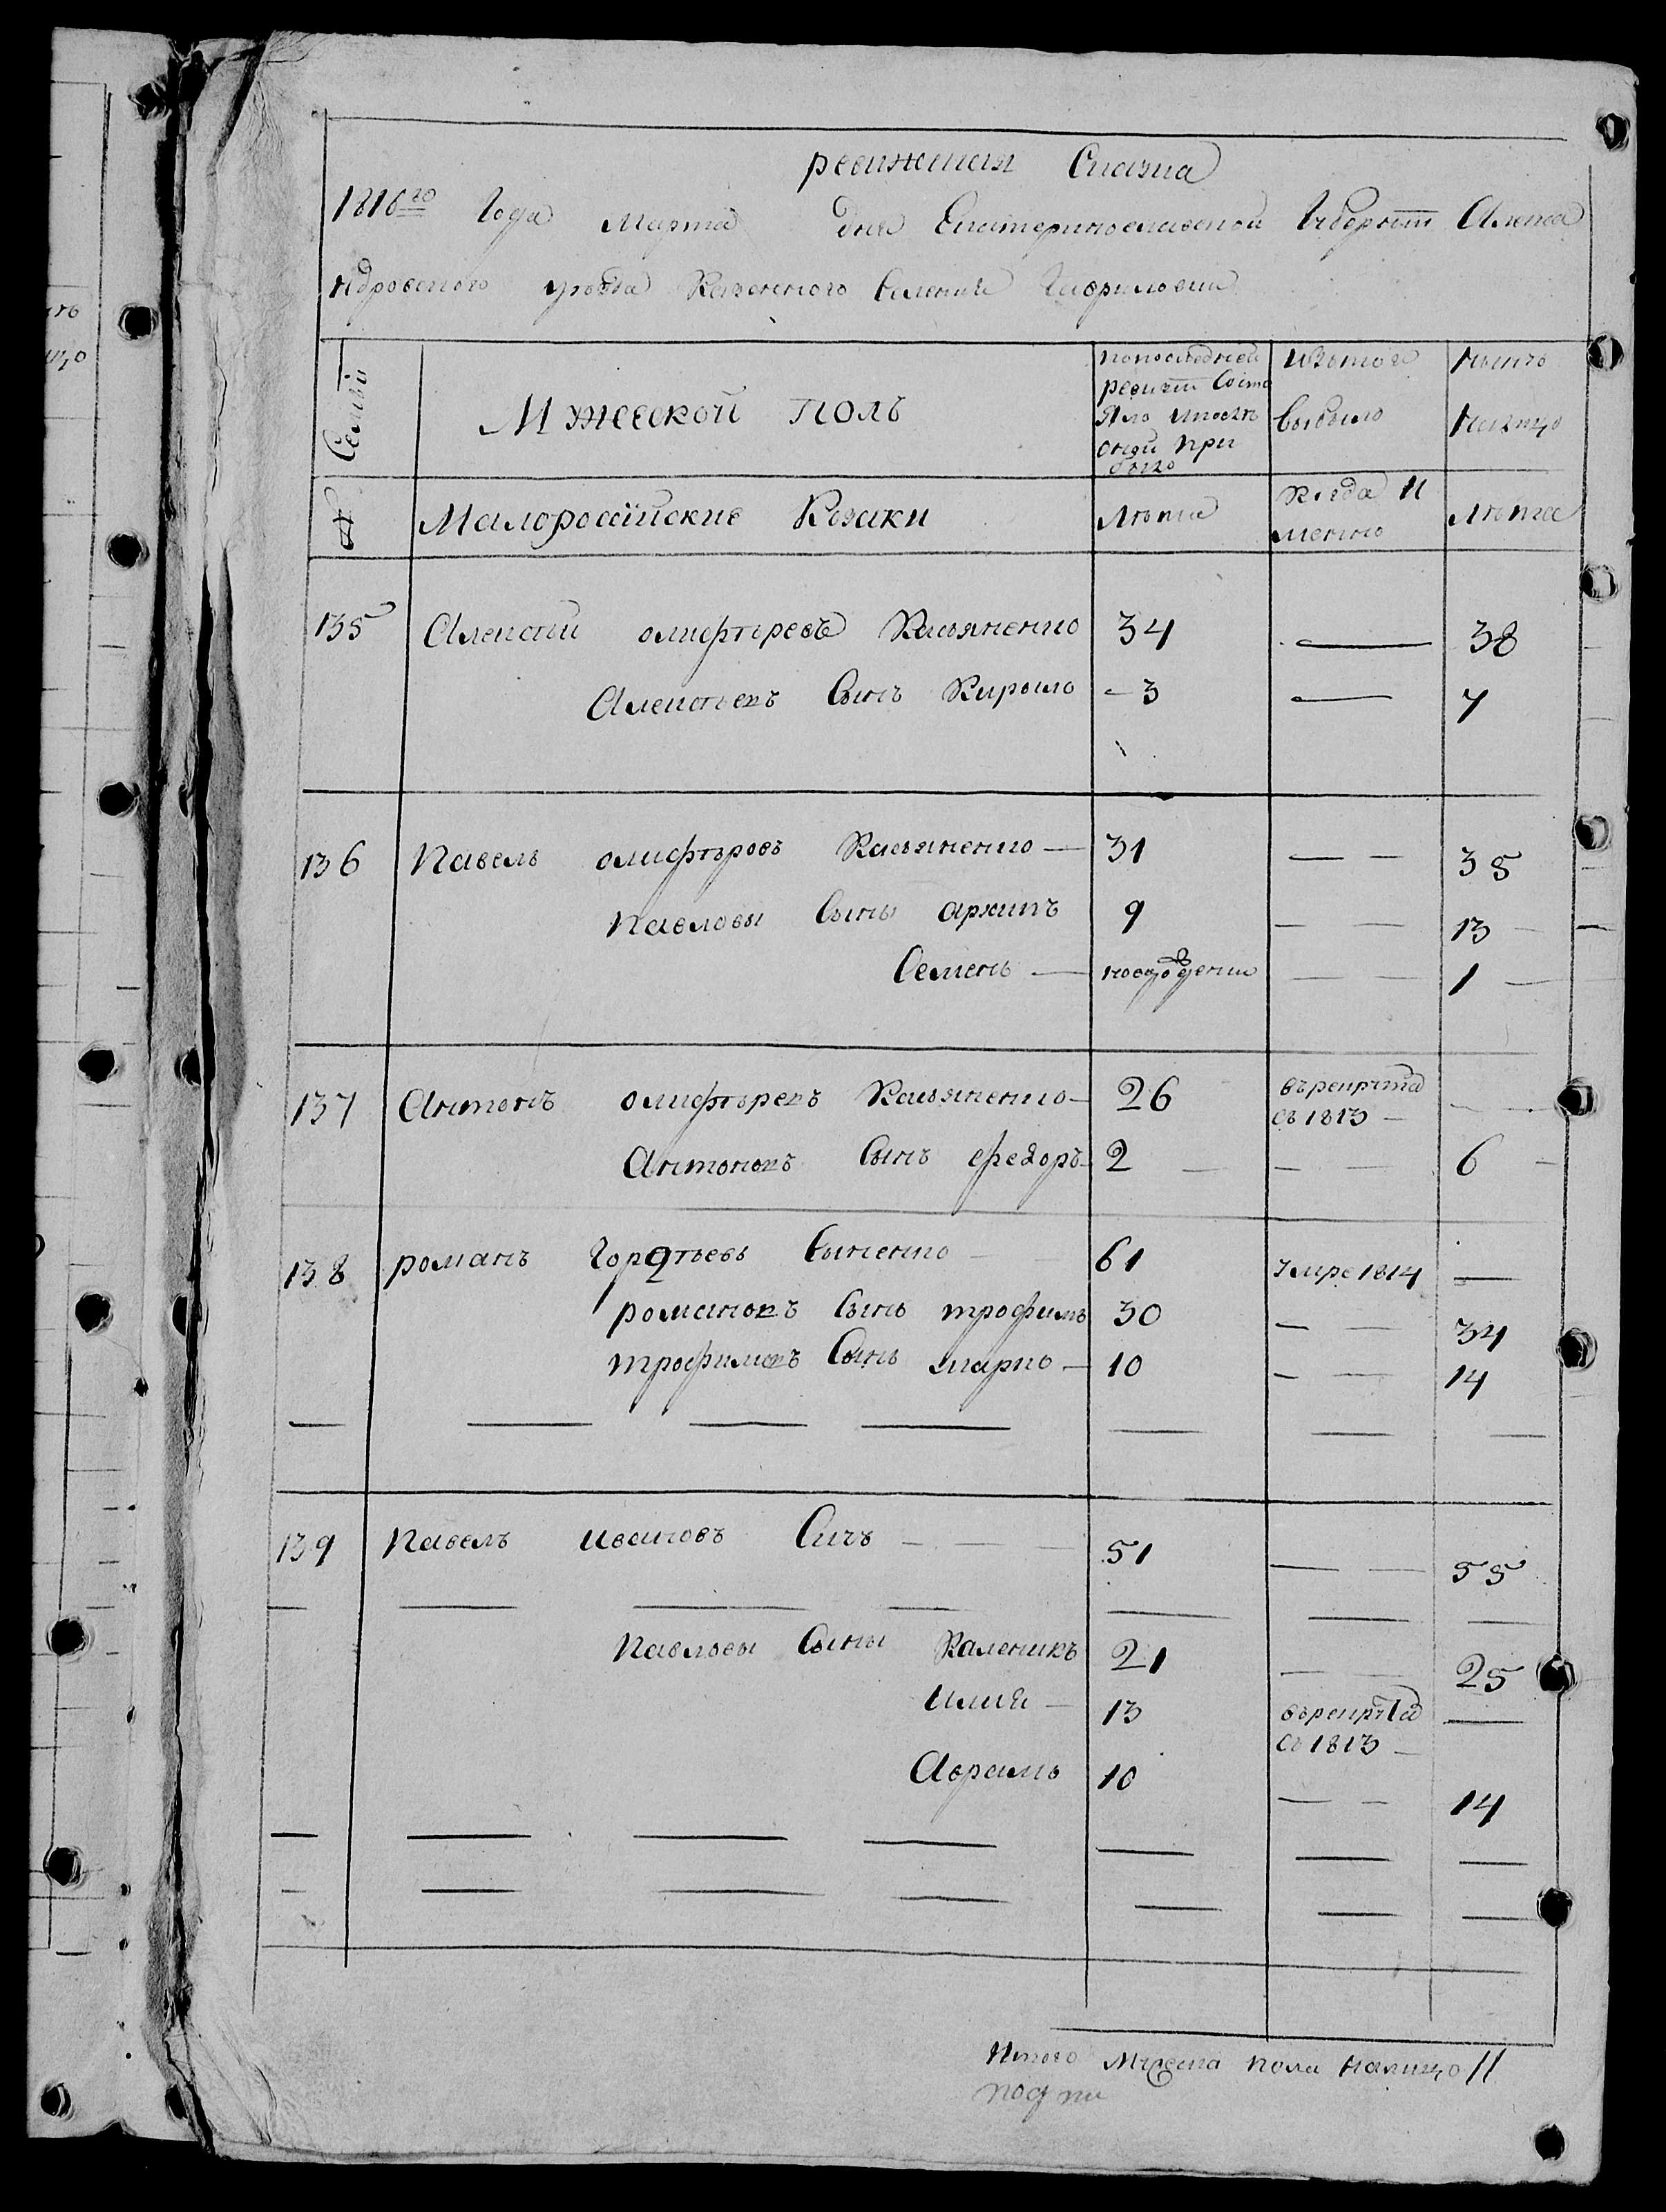 ревижская Сказка
1816го Года Марта дня Екатеринославской Губернии Алекса
ндровского уезда Казенного Селения Гавриловки
Семьи
Мужеской полъ
попоследней ревизии Состояло ипосле оной прибыло
Изтого выбыло
Ныне налицо
№
Малороссийские Козаки
Лета
Когда Именно
Лета
135 Алексей олифировъ Касьяненко 34 — 38
Алексеевъ Сынъ Кирыло – 3 — 7
136 Павелъ олиферовъ Касьяненко — 31 — — 35
Павловы Сыны архипъ 9 — — 13
Семенъ — новорожденни — — 1
137 Антонъ олиферевъ Касьяненко — 26 врекрута въ 1813 —
Антоновъ Сынъ федоръ 2 — — 6
138 романъ Гордеевъ Сыненко — 61 Умре 1814 —
романовъ Сынъ трофимъ 30 — — 34
трофимовъ Сынъ марко — 10 — — 14
139 Павелъ ивановъ Сичъ — — — 51 — — 55
Павловы Сыны Каленикъ 21 — — 25
Илия — 13 врекрута въ 1813 —
Аврамъ 10 — — 14
Итого Мужеска пола налицо 11